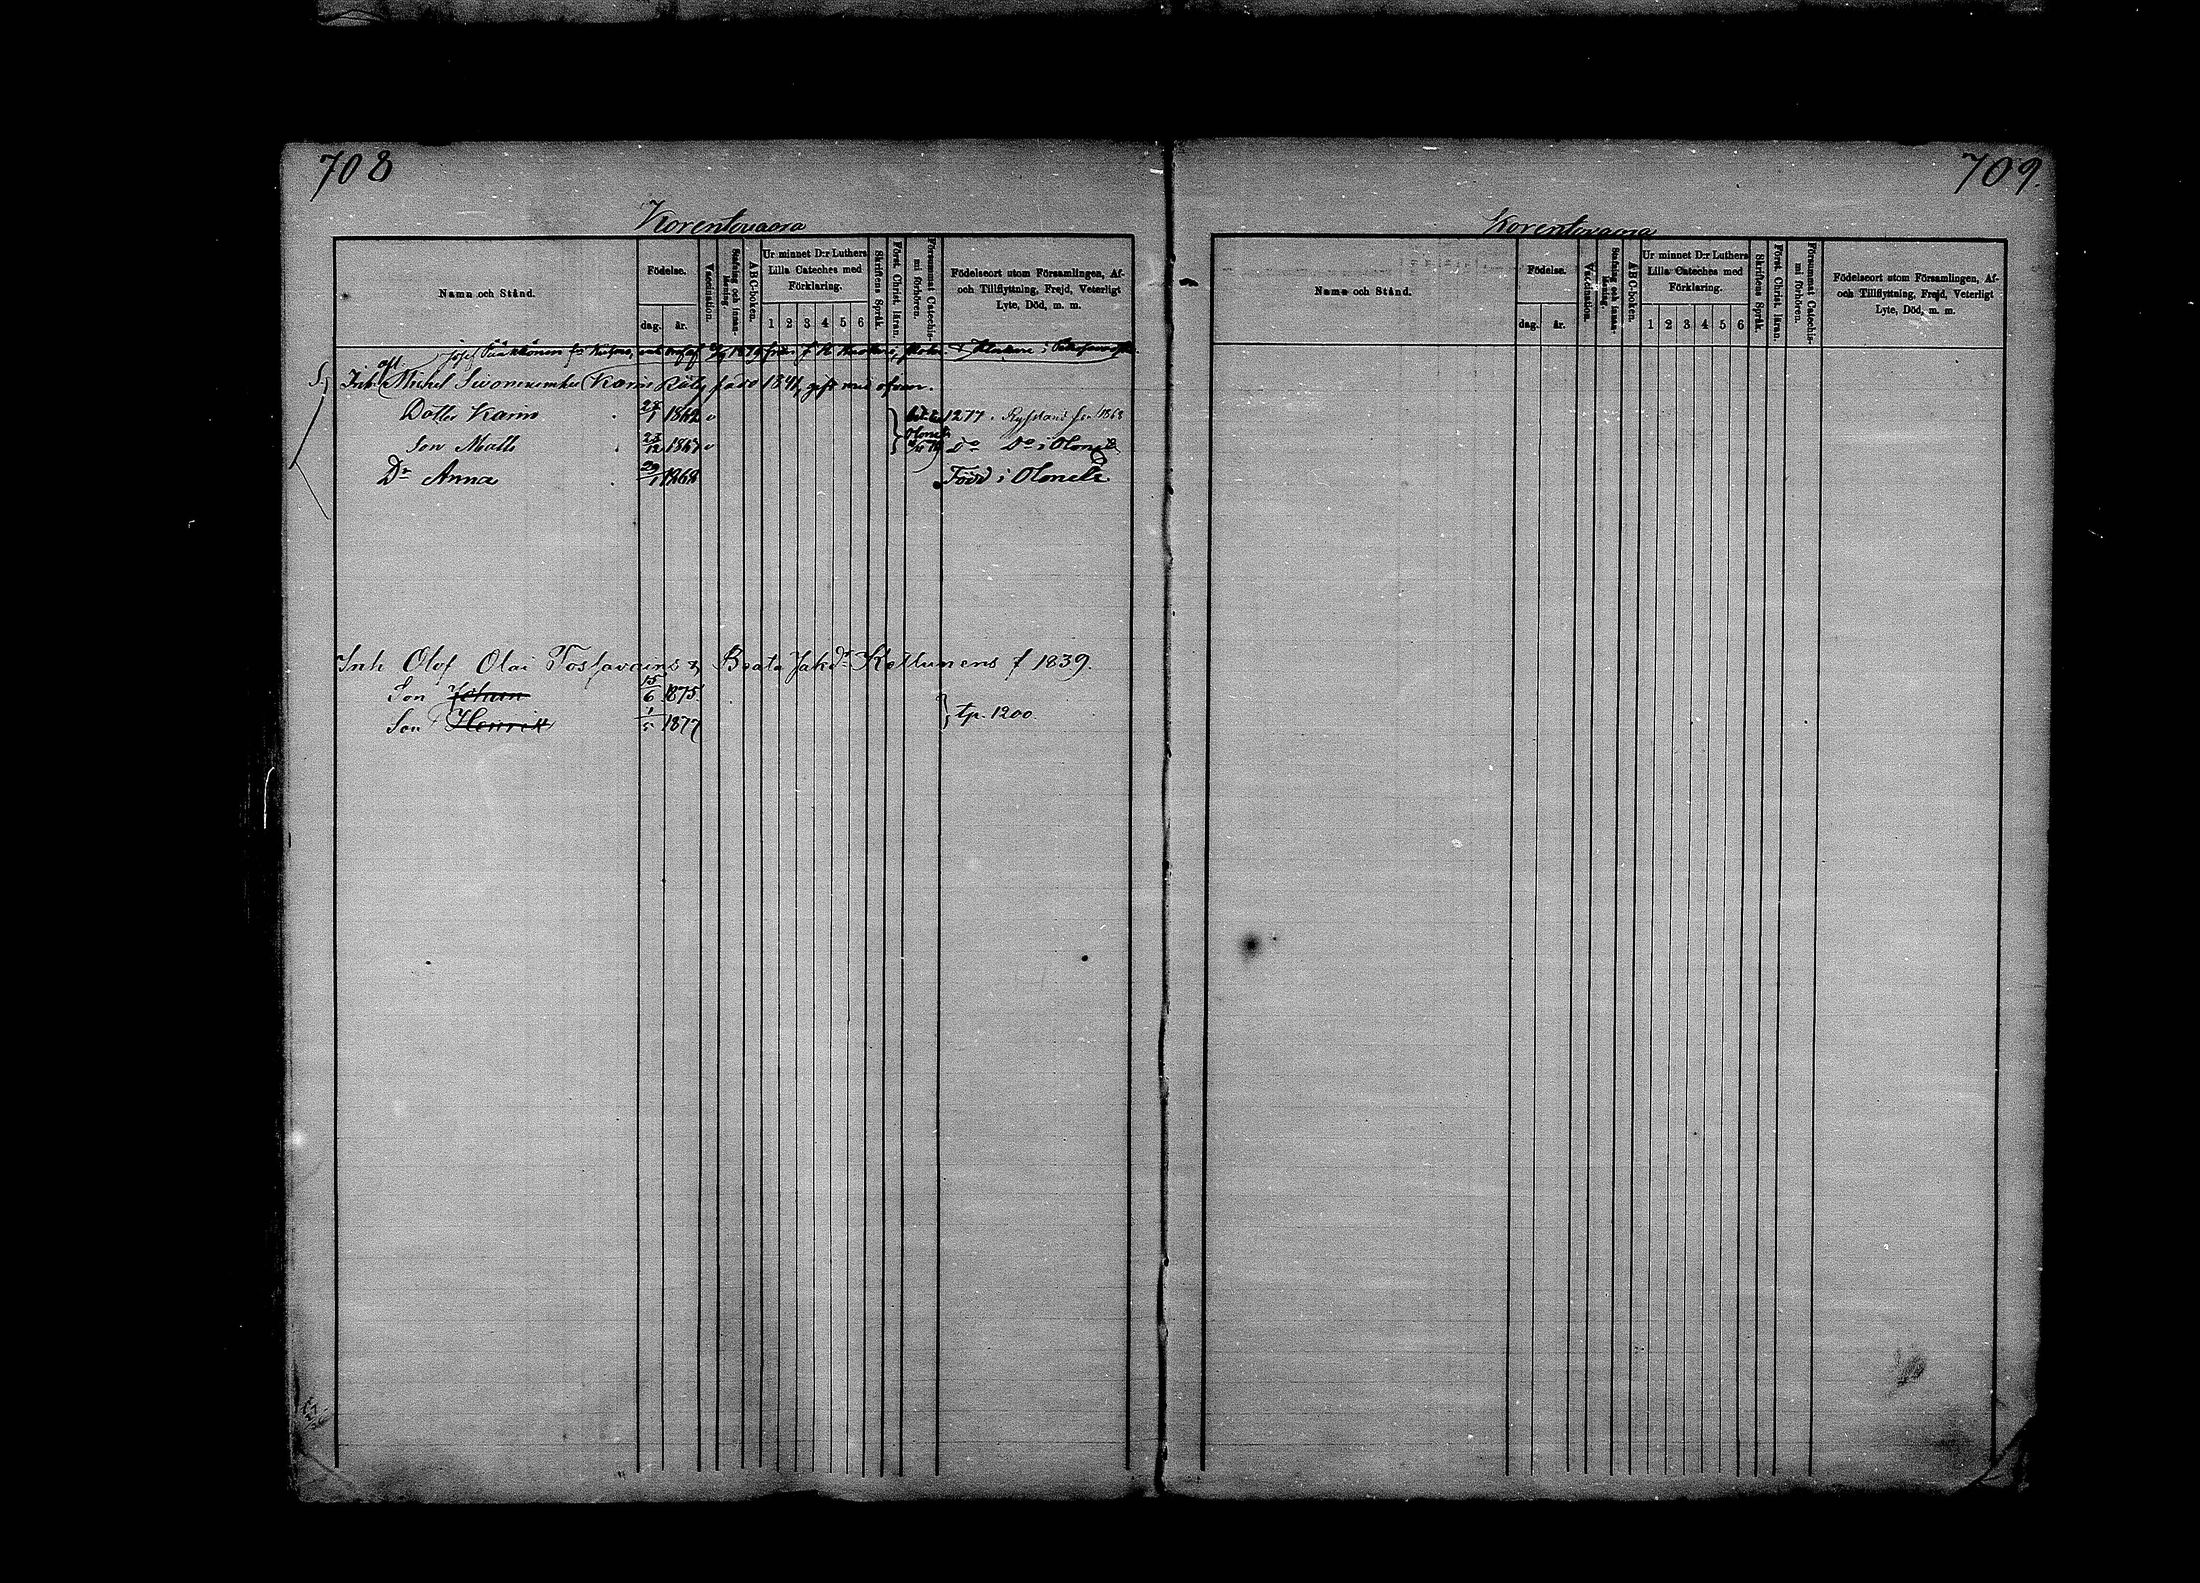 708
Korentovaara
Namn och Stånd.
Födelse.
dag. år.
Vaccination.
Stafning och innanläsning.
ABC-boken.
Ur minnet D:r Luthers Lilla Cateches med Förklaring.
1 2 3 4 5 6
Skriftens Språk.
Först. Christ. läran.
Försummat Catechismi förhören.
Födelseort utom Församlingen, Af- och Tillflyttning, Frejd, Veterligt Lyte, Död, m. m.
Josef
Inh. Michel Karin f. ado 1841, gift med
Dottr Karin 1862 v 1277. 1868
Son Matts 1867 v Do Do i Olonetz
Dr Anna 29/1 1868 Född i Olonetz
Inh Olof Olai Tossavains & Beata Jak.dr Kettunens f 1839.
Son Johan 15/6 1875
Son Henrik 1877 } tp. 1200
709.
Korentovaara
Namn och Stånd.
Födelse.
dag. år.
Vaccination.
Stafning och innanläsning.
ABC-boken.
Ur minnet D:r Luthers Lilla Cateches med Förklaring.
1 2 3 4 5 6
Skriftens Språk.
Först. Christ. läran.
Försummat Catechismi förhören.
Födelseort utom Församlingen, Af- och Tillflyttning, Frejd, Veterligt Lyte, Död, m. m.